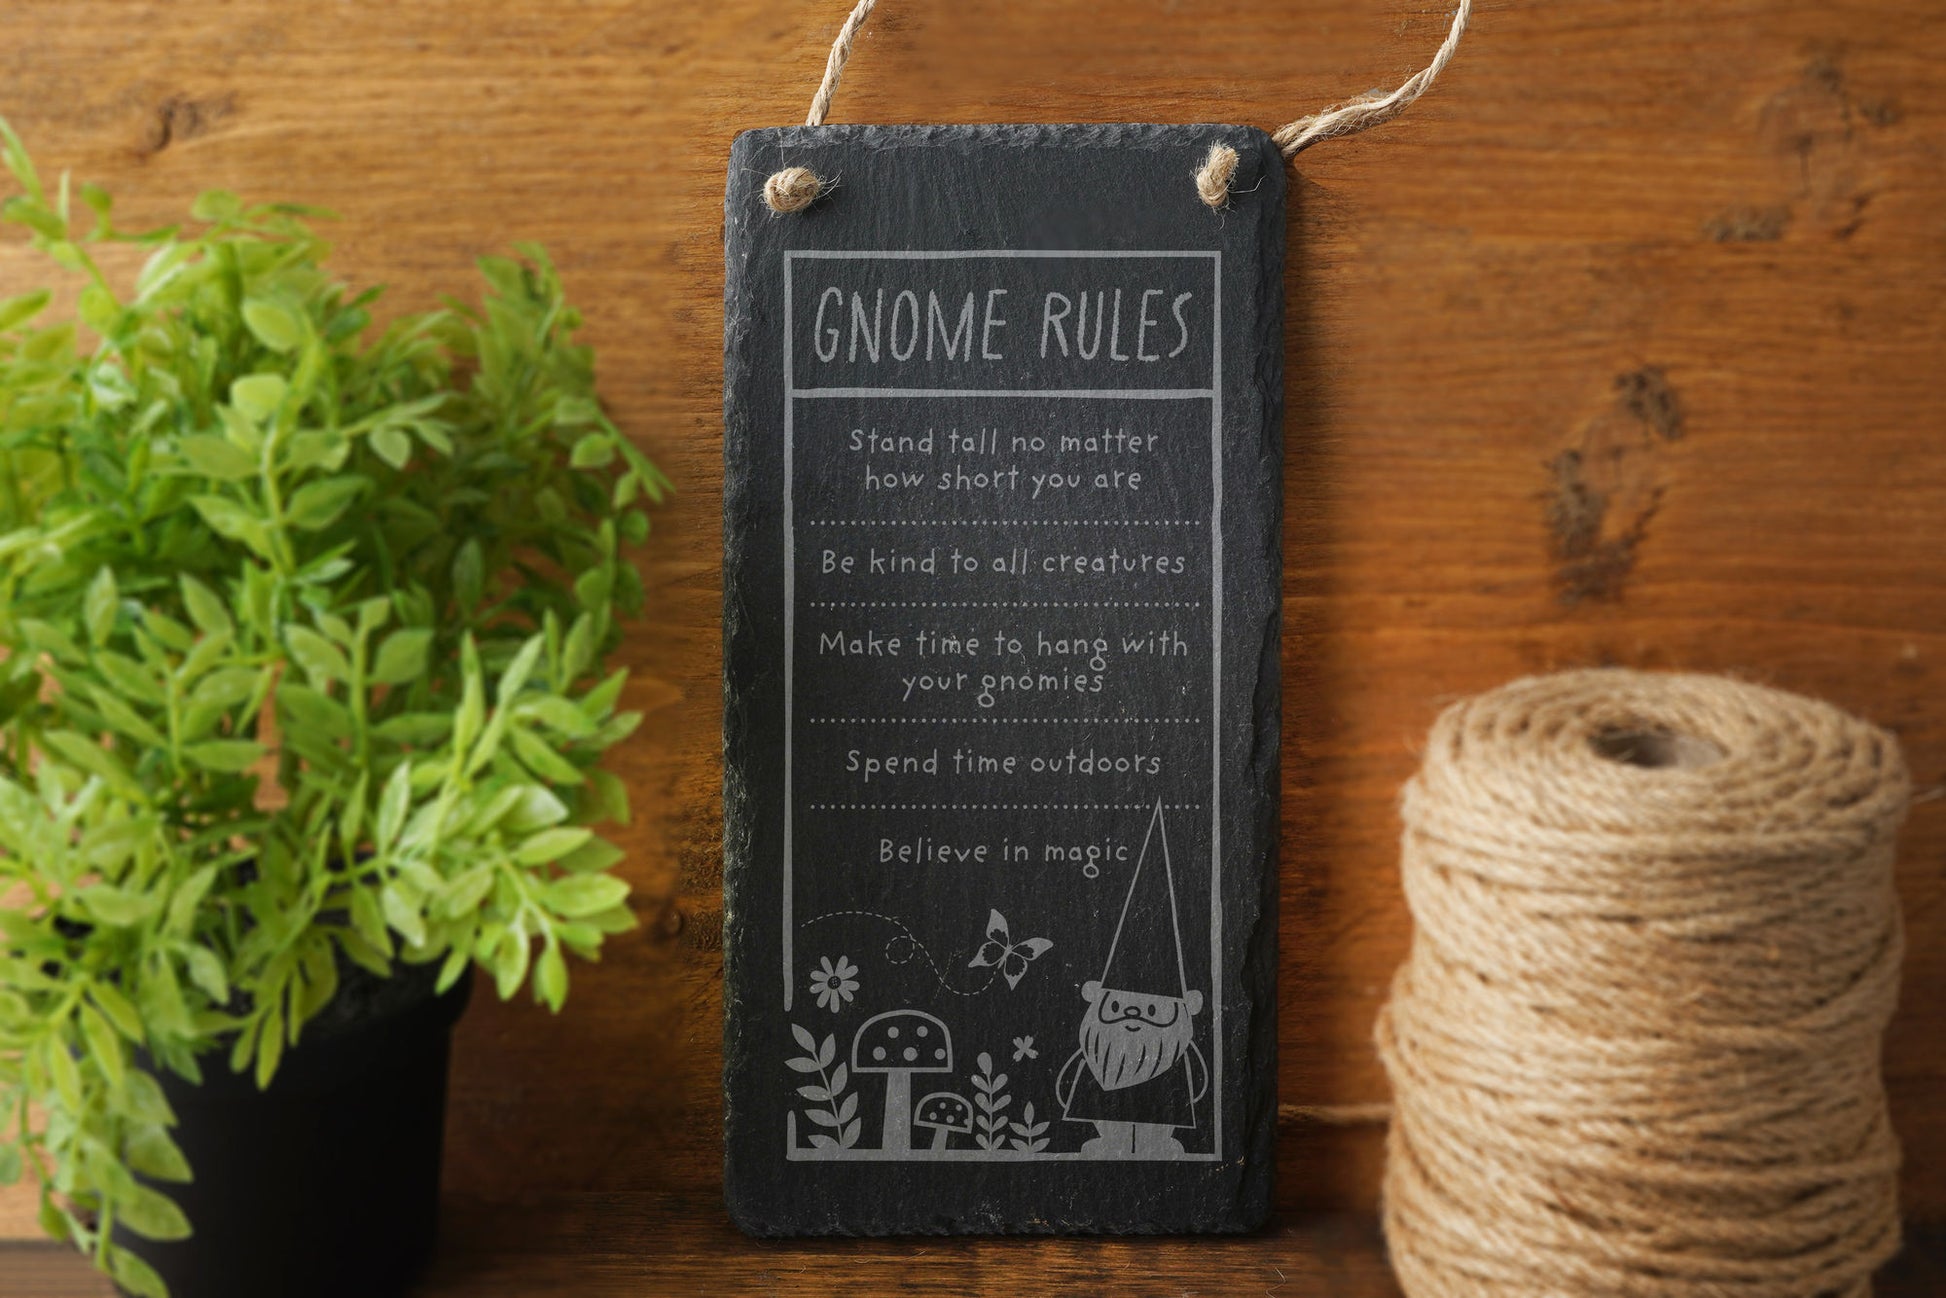 GNOME RULES
Stand tall no matter
how short you are
Be kind to all creatures
Make time to hang with
your gnomies
Spend time outdoors
Believe in magic